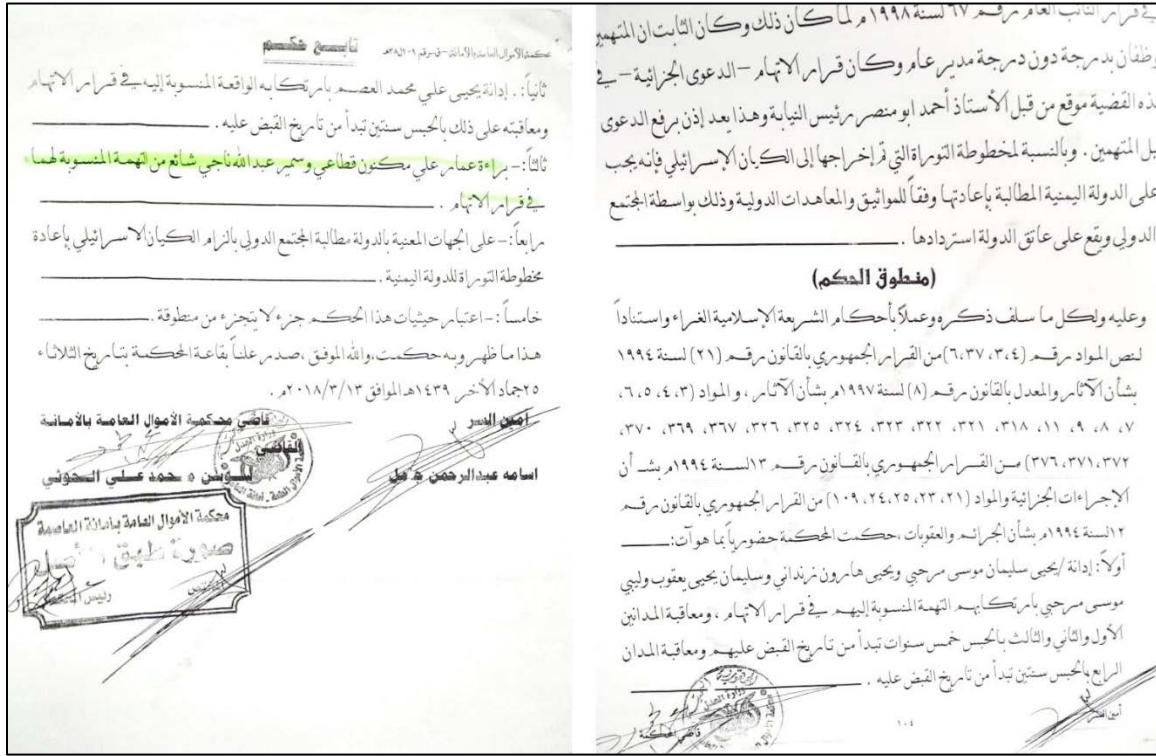 في قرار النائب العام رقم ٦٧ لسنة ١٩٩٨م لما كان ذلك وكان الثابت ان المتهمين
وظفان بدرجة دون درجة مدير عام وكان قرار الاتهام -الدعوى الجزائية- في
هذه القضية موقع من قبل الأستاذ أحمد ابو منصر رئيس النيابة وهذا يعد إذن برفع الدعوى
قبل المتهمين . وبالنسبة لمخطوطة التوراة التي تم إخراجها إلى الكيان الإسرائيلي فإنه يجب
على الدولة اليمنية المطالبة بإعادتها وفقاً للمواثيق والمعاهدات الدولية وذلك بواسطة المجتمع
الدولي ويقع على عاتق الدولة استردادها .
(منطوق الحكم)
وعليه ولكل ما سلف ذكره وعملاً بأحكام الشريعة الإسلامية الغراء واستناداً
لنص المواد رقم (٣،٤، ٦،٣٧) من القرار الجمهوري بالقانون رقم (٢١) لسنة ١٩٩٤
بشأن الآثار والمعدل بالقانون رقم (٨) لسنة ١٩٩٧م بشأن الآثار ، و المواد (٣، ٤، ٥، ٦،
٧، ٨، ٩، ١١، ٣١٨، ٣٢١، ٣٢٢، ٣٢٣، ٣٢٤، ٣٢٥، ٣٢٦، ٣٦٧، ٣٦٩، ٣٧٠،
٣٧١،٣٧٢، ٣٧٦) من القرار الجمهوري بالقانون رقم ١٣لسنة ١٩٩٤م بشأن
الإجراءات الجزائية والمواد (٢١، ٢٣، ٢٤،٢٥، ١٠٩) من القرار الجمهوري بالقانون رقم
١٢لسنة ١٩٩٤م بشأن الجرائم والعقوبات ،حكمت المحكمة حضورياً بما هو آت:
أولاً: إدانة /يحيى سليمان موسى مرحبي ويحيى هارون زنداني وسليمان يحيى يعقوب وليبي
موسى مرحبي بارتكابهم التهمة المنسوبة إليهم في قرار الاتهام ، ومعاقبة المدانين
الأول والثاني والثالث بالحبس خمس سنوات تبدأ من تاريخ القبض عليهم ومعاقبة المدان
الرابع بالحبس سنتين تبدأ من تاريخ القبض عليه .
أمين السر
قاضي المحكمة
١٠٤
تابع حكم
ثانياً: . إدانة يحيى علي محمد العصم بارتكابه الواقعة المنسوبة إليه في قرار الاتهام
ومعاقبته على ذلك بالحبس سنتين تبدأ من تاريخ القبض عليه .
ثالثاً:- براءة عمار علي مكنون قطاعي وسمير عبدالله ناجي شائع من التهمة المنسوبة لهما
في قرار الاتهام .
رابعاً:- على الجهات المعنية بالدولة مطالبة المجتمع الدولي بالزام الكيان الاسرائيلي بإعادة
مخطوطة التوراة للدولة اليمنية .
خامساً:-اعتبار حيثيات هذا الحكم جزء لا يتجزء من منطوقة .
هذا ما ظهر وبه حكمت،والله الموفق ،صدر علناً بقاعة المحكمة بتاريخ الثلاثاء
٢٥جماد الآخر ١٤٣٩هـ الموافق ٢٠١٨/٣/١٣م .
أمين السر
اسامه عبدالرحمن
قاضي محكمة الأموال العامة بالأمانة
القاضي
محمد علي الحوثي
محكمة الأموال العامة بأمانة العاصمة
صورة طبق الأصل
رئيس المحكمة